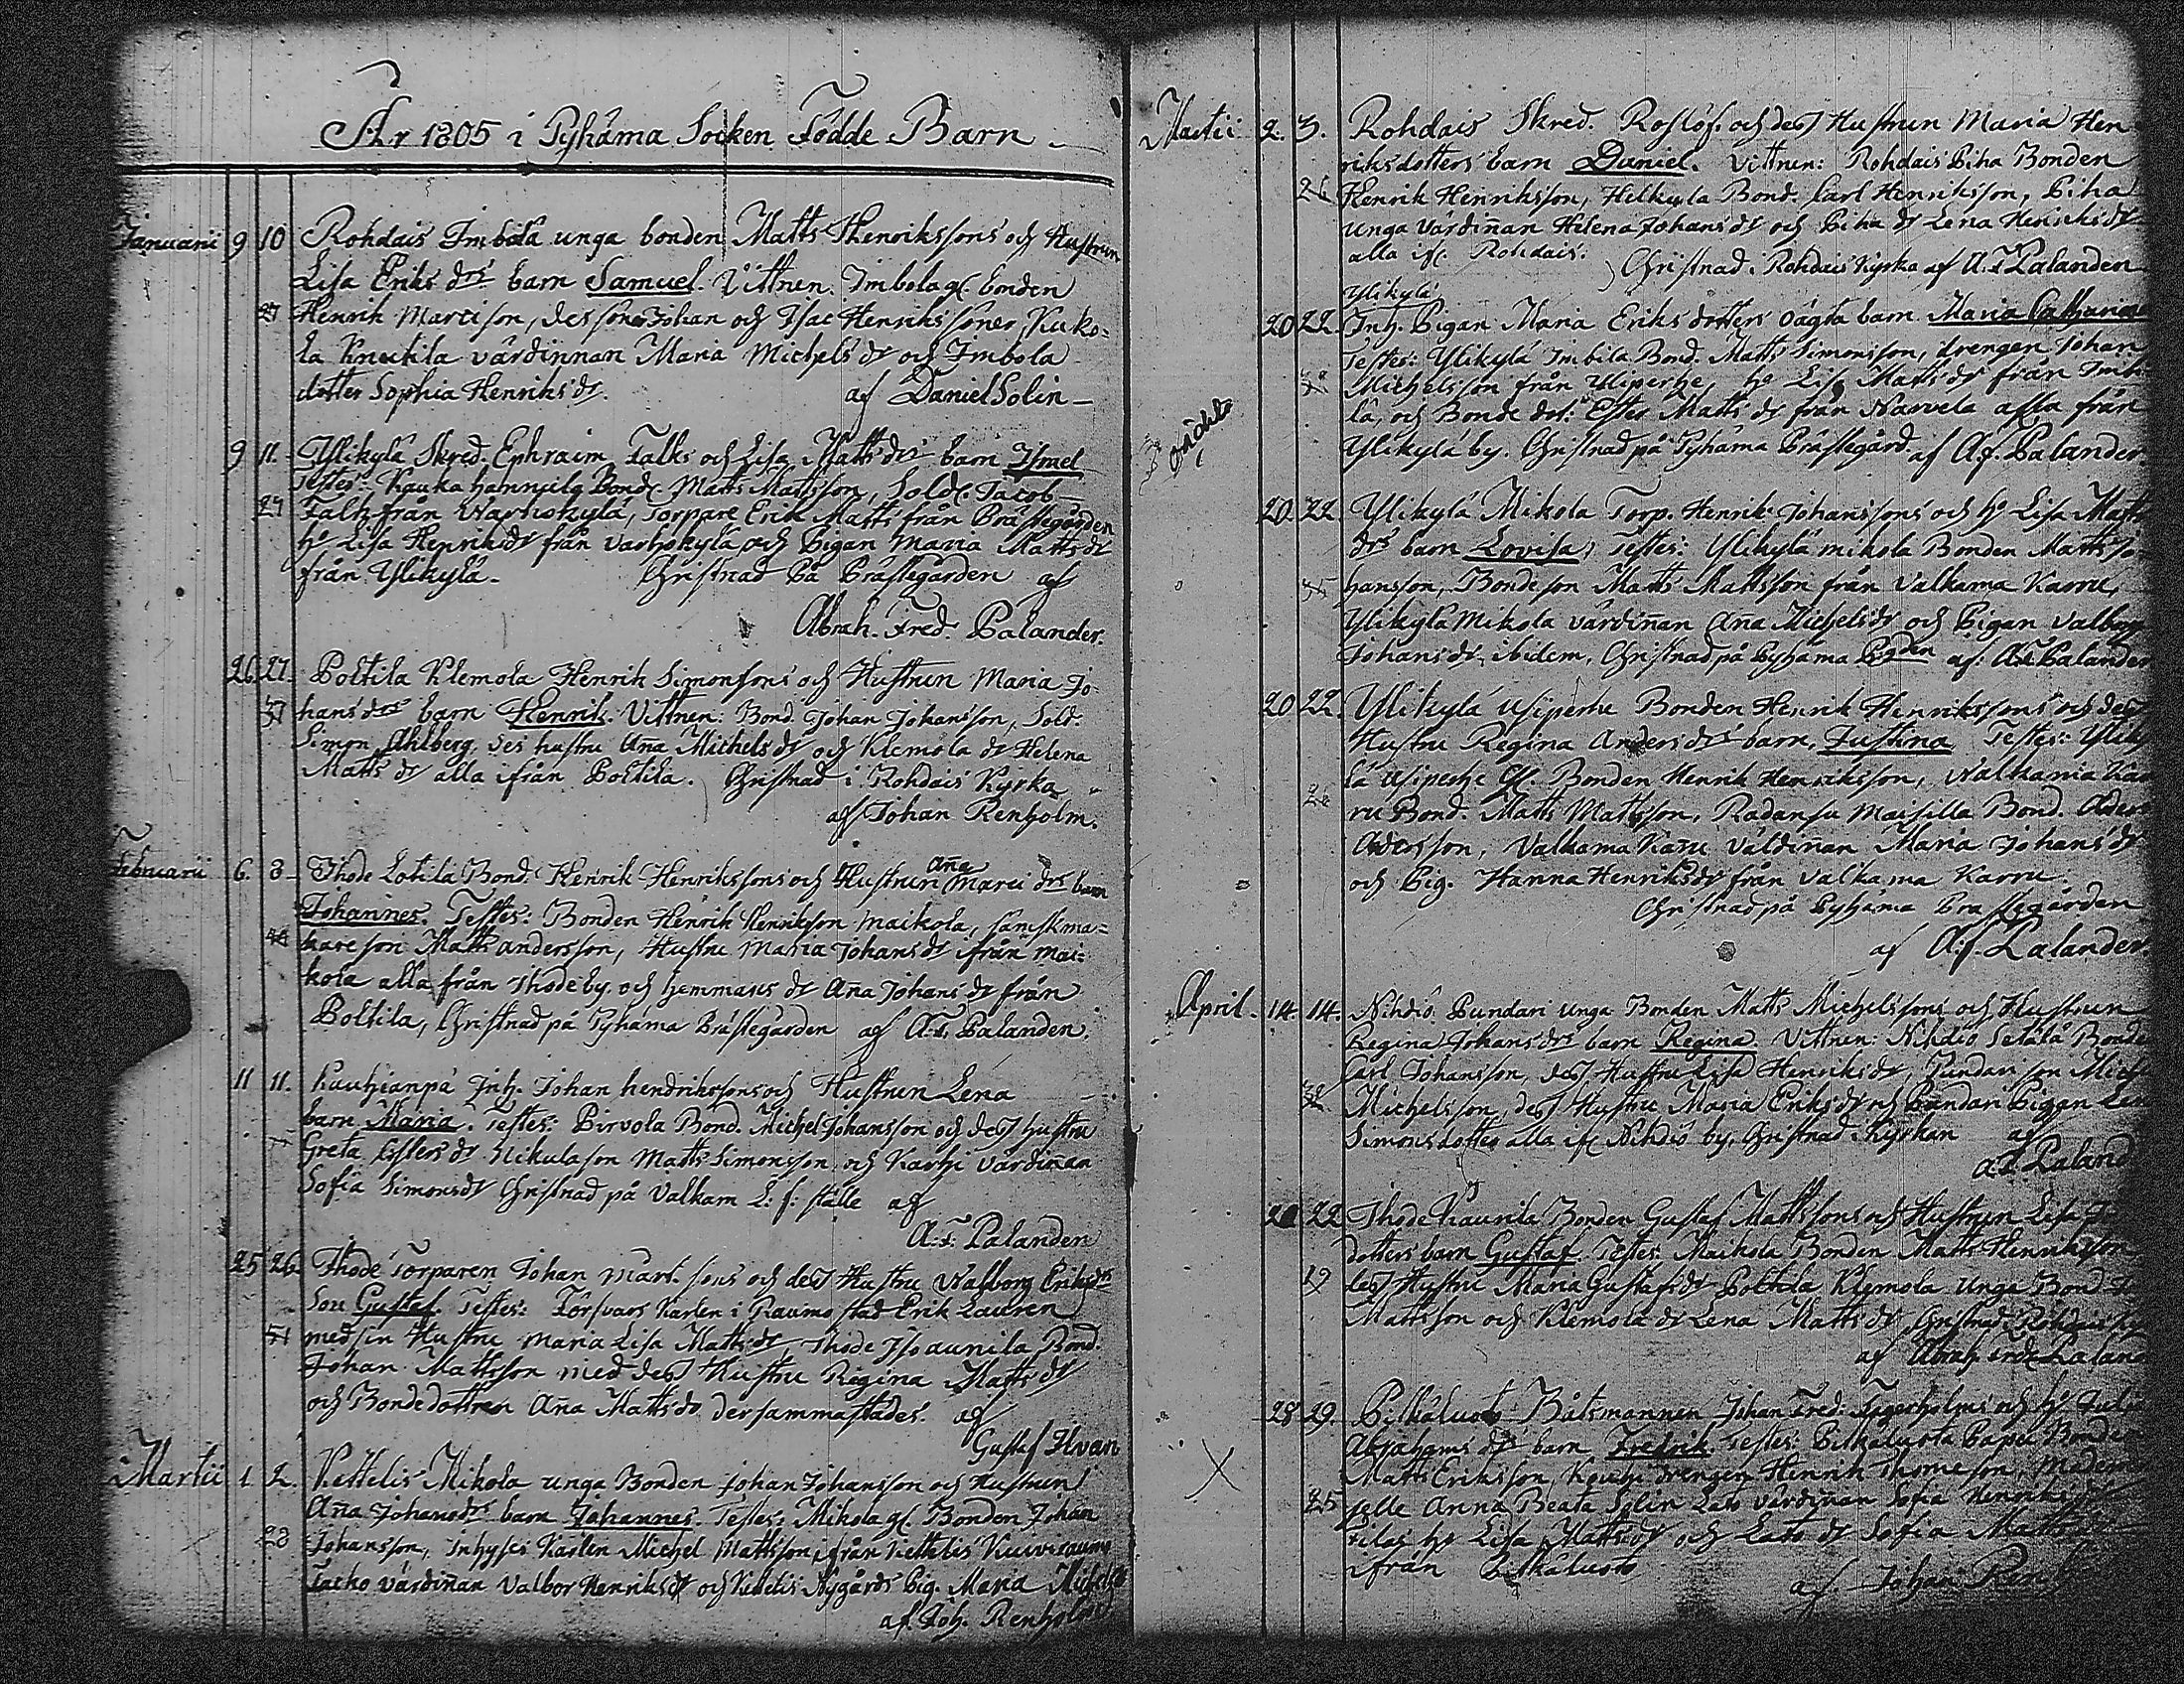 År 1805 i Pyhäma Socken Födde Barn
Januarii 9 10 Rohdais Imbola unga bonden Matts Henrikssons och Hustrun
Lisa Eriks drs barn Samuel. Vittnen. Imbola gl. bonden
27 Henrik Marcisson, des söner Johan och Isac Henrikssöner, Kuko=
la Knutila värdinnan Maria Michels dr och Imbola
dotter Sophia Henriks dr. af Daniel Solin
9 11. Ylikylä Skred. Ephraim Falks och Lisa Matts drs barn Ismel
Testes: Kauka Bond. Matts Mattsson, Sold. Jacob
27 Falk från Varhokylä, Torpare Erik Matts från Prästegården
h: Lisa Henriksdr från Varhokylä, och Pigan Maria Mattsdr
från Ylikylä. Christnad På Prästegården af
Abrah. Fred. Palander.
26 27. Poltila Klemola Henrik Simonsons och Hustrun Maria Jo=
37 hans drs barn Henrik. Vittnen: Bond. Johan Johansson, Sold.
Simon Ahlberg, des hustru Aña Michels dr och Klemola dr Helena
Matts dr alla ifrån Poltila. Christnad i Rohdais Kyrka
af Johan Renholm.
Februarii 6. 8 Ihode Lotila Bond. Henrik Henrikssons och Hustrun Aña Marci drs barn
Johannes. Testes: Bonden Henrik Henrikson Maikola, sämskma=
kare son Matts andersson, Hustru Maria Johans dr ifrån Mai=
kola alla från Ihode by. och hemmans dr Aña Johans dr från
Poltila, Christnad på Pyhäma Prästegården af A. F. Palander.
11 11. Inh. Johan hendrikssons och Hustrun Lena
barn Maria. Testes: Pirvola Bond. Michel Johansson och des hustru
Greta dr Nikula son Matts Simonsson och värdiñan
Sofia Simonsdr Christnad på Valkam ställe af
A. F. Palander
25 26. Ihode Torparen Johan Mart. sons och des Hustru Valborg Eriksdrs
Son Gustaf. Testes: Försvars Karlen i Raumo stad Erik Lauren
51 med sin Hustru Maria Lisa Matts dr, Ihode Isoaunila Bond.
Johan Mattsson med des Hustru Regina Matts dr
och Bondedottren Aña Matts dr dersammastädes. af
Gustaf Ilvan
Martii 1. 2. Kettelis Mikola unga Bonden Johan Johansson och Hustrun
Aña Johansdrs barn Johannes. Testes: Mikola gl. Bonden Johan
23 Johansson, Inhyses Karlen Michel Mattsson, från Kettelis Kuiviraumo
värdiñan Valbor Henriksdr och Kettelis Nygårds Pig. Maria
af Joh. Renholm
Martii 2. 3. Rohdais Skred. Roslöf. och des Hustrun Maria Hen
riksdotters barn Daniel. Vittnen: Rohdais Piha Bonden
26 Henrik Henriksson, Helkyla Bond. Carl Henriksson, Piha
unga värdiñan Helena Johans dr och Piha dr Lena Henriks dr
alla ifr. Rohdais. Christnad i Rohdais Kyrka af A. F. Palander
Ylikylä
20 22. Inh. Pigan Maria Eriks dotters oägta barn Maria Catharina
Testes: Ylikylä Imbila Bond. Matts Simonsson, drengen Johan
Michelsson från Ylipertte, h: Lisa Matts dr från Imbi
lä, och Bonde dot: Ester Matts dr från Narvela alla från
oächta
Ylikylä by. Christnad på Pyhäma Prästegård. af A. F. Palander.
20. 22 Ylikylä Mikola Torp. Henrik Johanssons och h: Lisa Matts
drs barn Lovisa, Testes: Ylikylä mikola Bonden Matts Jo
35 hansson, Bondeson Matts Mattsson från Valkama Karru,
Ylikylä Mikola värdiñan Aña Michelsdr och Pigan Valborg
Johansdr, ibidem. Christnad på Pyhäma Pgden af: A. F. Palander
20 22. Ylikylä Ylipertte Bonden Henrik Henrikssons och des
Hustru Regina Andersdrs barn, Justina Testes: Yliky
lä Ylipertte Gl. Bonden Henrik Henriksson, Valkama Kar
ru Bond. Matts Mattsson, Radansu Maisilla Bond. Anders
Andersson, Valkama Karru Värdiñan Maria Johans dr
och Pig. Hanna Henriksdr från Valkama Karru.
Christnad på Pyhäma Prästegården
af A. F. Palander.
April. 14. 14. Nihdiö Pundari unga Bonden Matts Michelssons och Hustrun
Regina Johans drs barn Regina. Vittnen: Nihdiö Seläla Bonden
Carl Johansson, des Hustru Lisa Henriksdr, Pundari son Michel
Michelsson, des Hustru Maria Eriksdr och Pundari Pigan Lena
Simonsdotter alla ifr. Nihdiö by, Christnad i Kyrkan af
A. F. Paland
22 Ihode Kaurila Bonden Gustaf Mattssons och Hustrun Lisa
dotters barn Gustaf. Testes: Maikola Bonden Matts Henriksson
19 des Hustru Maria Gustafsdr Poltila Klemola Unga Bond
Mattsson och Klemola dr Lena Matts dr, Christnad i Rohdais
af Abrah. Palander
28 29. Pitkäluoto Båtsmannen Johan Fred: Tigerholms och h:
Abrahams drs barn Fredrik. Testes: Pitkäluoto Papu Bonden
Matts Eriksson, drengen Henrik Thomeson, Madem
25 selle Anna Beata Solin Lato värdiñan Sofia Henriksdr
h: Lisa Matts dr och Lato dr Sofia Matts dr
ifrån Pitkäluoto
af. Johan